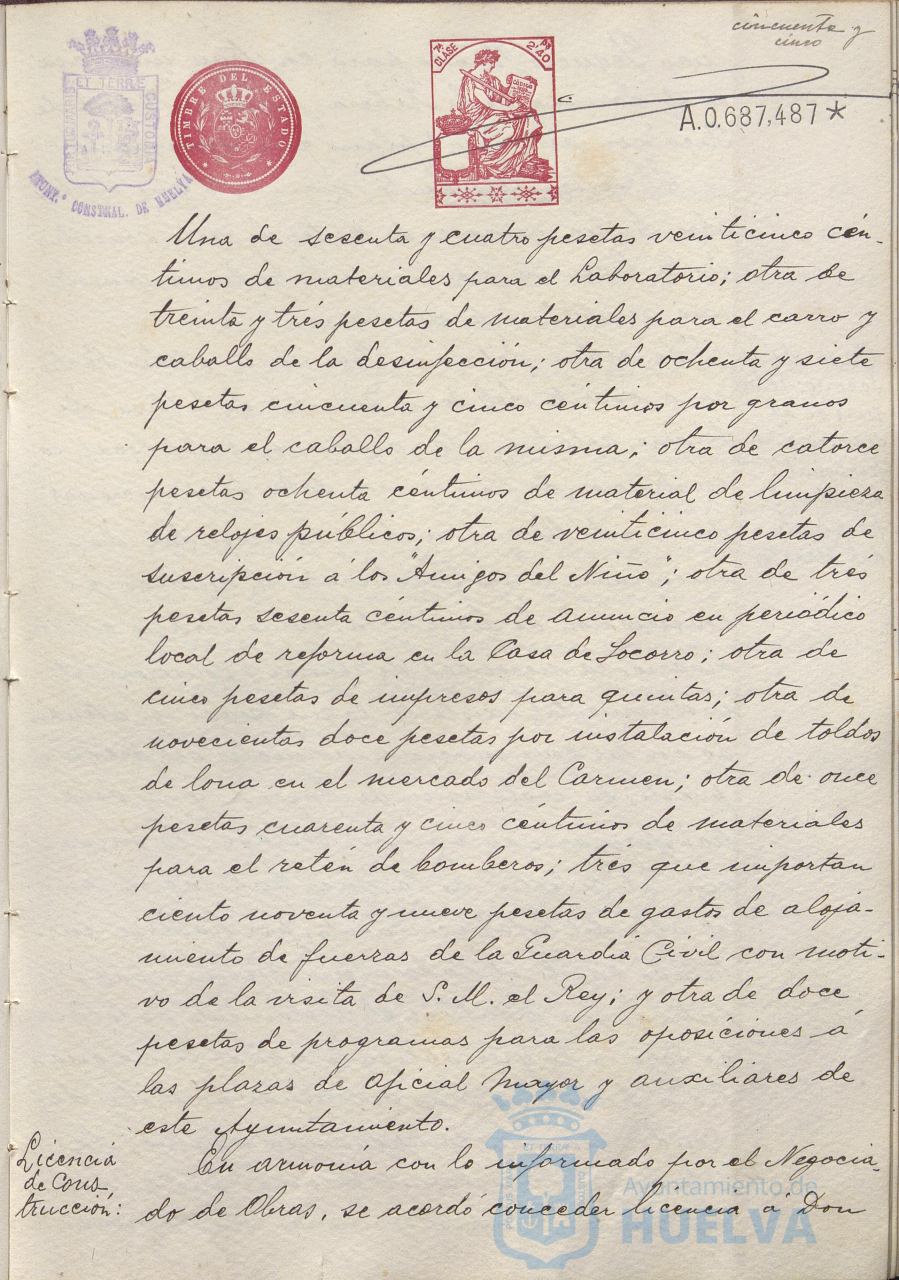 cincuenta y
cinco
ET TERRÆ CUSTODIA
AYUNT.º CONSTNAL. DE HUELVA
TIMBRE DEL ESTADO
7ª CLASE
2'40
A.0.687,487 *
Una de sesenta y cuatro pesetas veinticinco cén-
timos de materiales para el Laboratorio; otra de
treinta y trés pesetas de materiales para el carro y
caballo de la desinfección; otra de ochenta y siete
pesetas cincuenta y cinco céntimos por granos
para el caballo de la misma; otra de catorce
pesetas ochenta céntimos de material de limpieza
de relojes públicos; otra de veinticinco pesetas de
suscripción á los "Amigos del Niño"; otra de trés
pesetas sesenta céntimos de anuncio en periódico
local de reforma en la Casa de Socorro; otra de
cinco pesetas de impresos para quintas; otra de
novecientas doce pesetas por instalación de toldos
de lona en el mercado del Carmen; otra de once
pesetas cuarenta y cinco céntimos de materiales
para el retén de bomberos; trés que importan
ciento noventa y nueve pesetas de gastos de aloja-
miento de fuerzas de la Guardia Civil con moti-
vo de la visita de S. M. el Rey; y otra de doce
pesetas de programas para las oposiciones á
las plazas de oficial mayor y auxiliares de
este Ayuntamiento.
Licencia
de cons
trucción:
En armonía con lo informado por el Negocia-
do de Obras, se acordó conceder licencia á Don
Ayuntamiento de
HUELVA